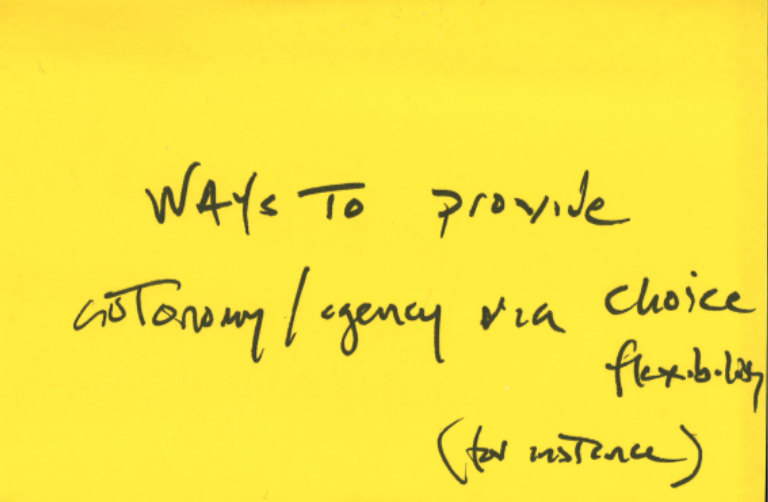 WAYs To provide
autonomy/agency via choice
flexibility
(for instance)